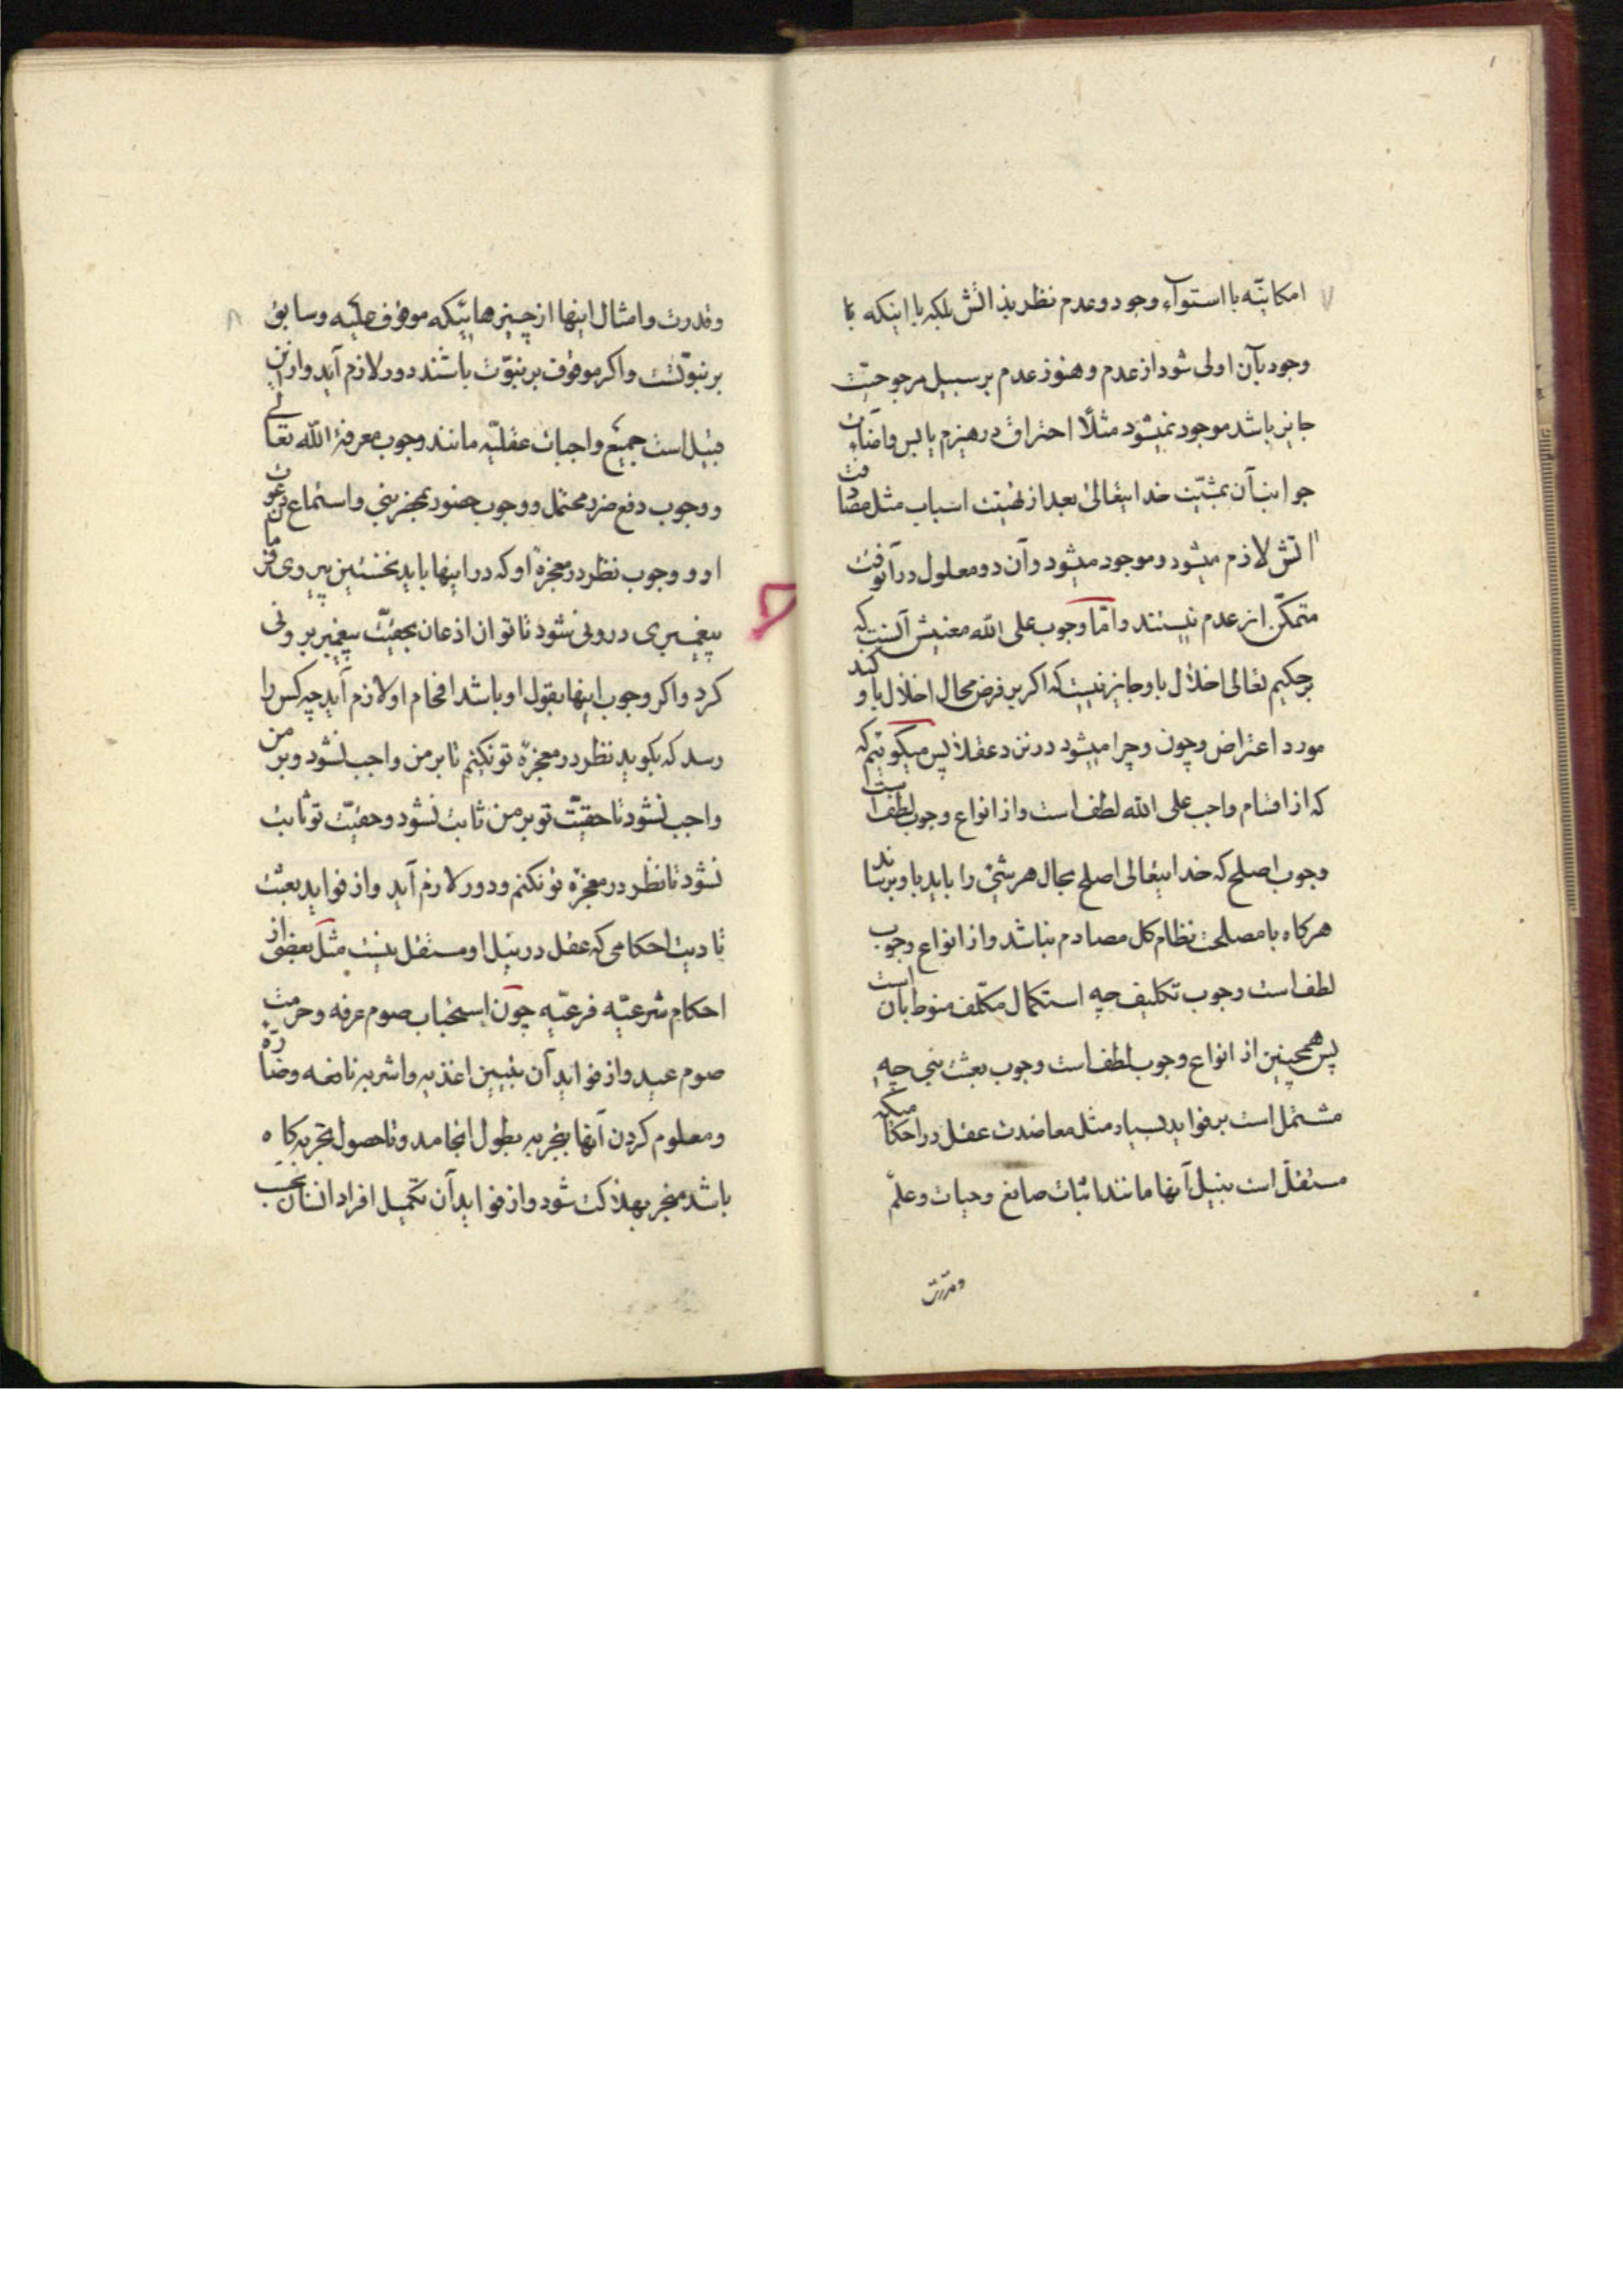 ۷
امکانیّه با استوآء وجود و عدم نظر بذاتش بلکه با اینکه تا
وجود بآن اولی شود از عدم و هنوز عدم بر سبیل مرجوحیّت
جایز باشد موجود نمیشود مثلًا احتراق در هیزم یابس و اضآءت
جوانب آن بمشیّت خدایتعالی بعد از تهیئت اسباب مثل مصادفت
آتش لازم میشود و موجود میشود و آن دو معلول در آنوقت
متمکّن از عدم نیستند و امّا وجوب علی الله معنیش آنست که
بر حکیم تعالی اخلال باو جایز نیست که اکر بر فرض محال اخلال باو کند
مورد اعتراض و چون و چرا میشود در نزد عقلا پس میکوئیم که
که از اقسام واجب علی الله لطف است و از انواع وجوب لطف است
وجوب اصلح که خدایتعالی اصلح بحال هر شئ را باید باو برساند
هرکاه با مصلحت نظام کل مصادم نباشد و از انواع وجوب
لطف است وجوب تکلیف چه استکمال مکلّف منوط بآن است
پس همچنین از انواع وجوب لطف است وجوب بعثت نبی چه
مشتمل است بر فواید بسیار مثل معاضدت عقل در احکامیکه
مستقلّ است بنیل آنها مانند اثبات صانع و حیات و علم
و قدرت
۸
و قدرت و امثال اینها از چیزهائیکه موقوف علیه و سابق
بر نبوّتست و اکر موقوف بر نبوّت باشند دور لازم آید و از این
قبیل است جمیع واجبات عقلیّه مانند وجوب معرفة الله تعالی
و وجوب دفع ضرر محتمل و وجوب حضور بمحضر نبی و استماع دعوت
او و وجوب نظر در معجزۀ او که در اینها باید نخستین پیروی فرمان
پیغمبری درونی شود تا توان اذعان بحقیّت پیغمبر برونی
کرد و اکر وجوب اینها بقول او باشد افحام او لازم آید چه کس را
رسد که بکوید نظر در معجزۀ تو نکنم تا بر من واجب نشود و بر من
واجب نشود تا حقیّت تو بر من ثابت نشود و حقیّت تو ثابت
نشود تا نظر در معجزۀ تو نکنم و دور لازم آید و از فواید بعثت
تادیت احکامی که عقل در نیل او مستقل نیست مثل بعضی از
احکام شرعیّه فرعیّه چون استحباب صوم عرفه و حرمت
صوم عید و از فواید آن تبیین اغذیه و اشربه نافعه و ضارّه
و معلوم کردن آنها بتجربه بطول انجامد و تا حصول تجربه کاه
باشد منجر بهلاکت شود و از فواید آن تکمیل افراد انسان بحسب